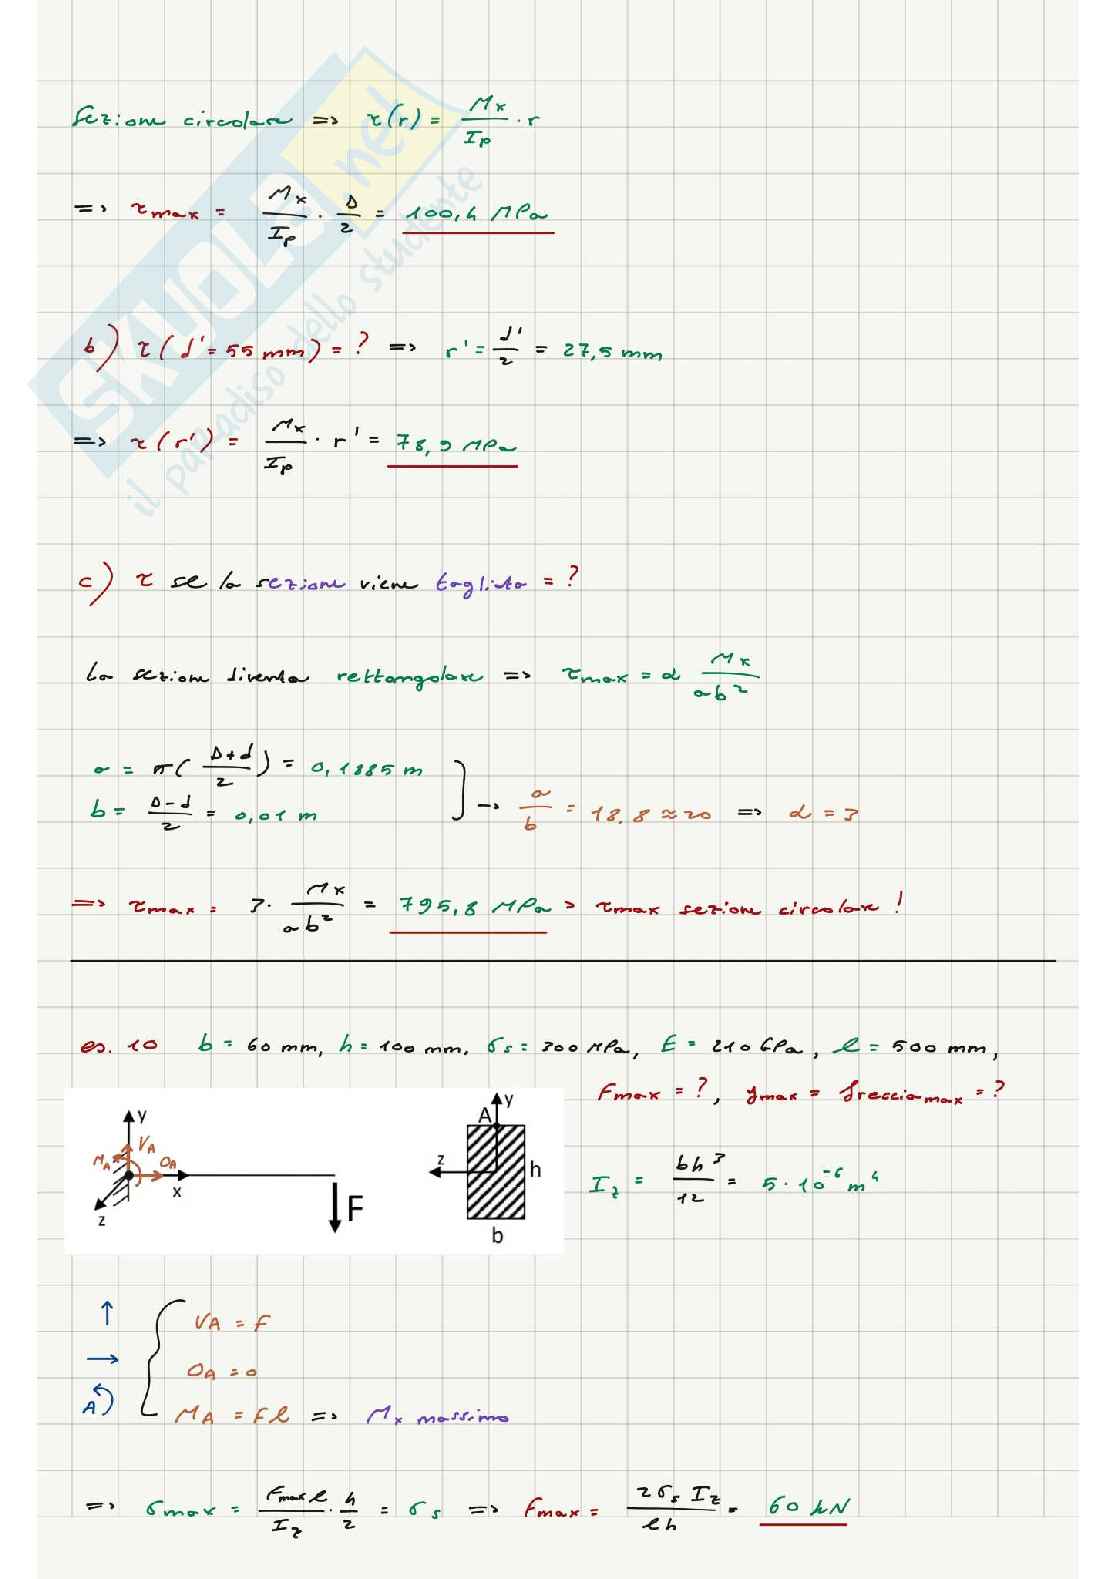 Sezione circolare => τ(r) = Mx/Ip · r
=> τmax = Mx/Ip · D/2 = 100,4 MPa
b) τ(d' = 55 mm) = ? => r' = d'/2 = 27,5 mm
=> τ(r') = Mx/Ip · r' = 78,9 MPa
c) τ se la sezione viene tagliata = ?
La sezione diventa rettangolare => τmax = α Mx/ab²
a = π((D+d)/2) = 0,1885 m
b = (D-d)/2 = 0,01 m → a/b = 18.8 ≈ 20 => α = 3
=> τmax = 3 · Mx/ab² = 795,8 MPa > τmax sezione circolare !
es. 10 b = 60 mm, h = 100 mm, σs = 300 MPa, E = 210 GPa, l = 500 mm,
Fmax = ?, ymax = frecciamax = ?
y
VA
MA
OA
x
z
F
A
y
z
h
b
Iz = bh³/12 = 5 · 10⁻⁶ m⁴
↑ VA = F
→ OA = 0
A MA = Fl => Mx massimo
=> σmax = Fmax l/Iz · h/2 = σs => Fmax = 2σs Iz/lh = 60 kN
SKUOLA.net
il paradiso dello studente